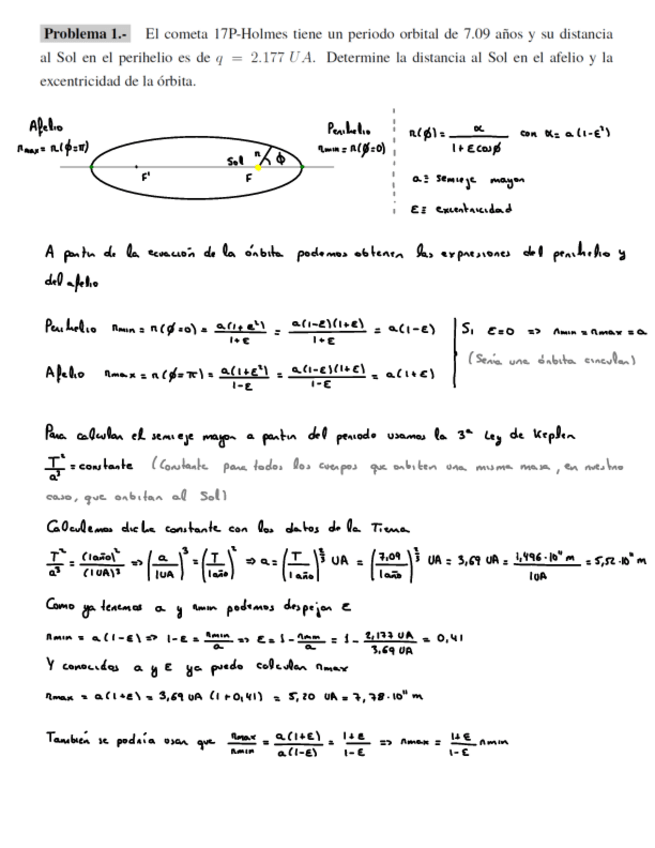 Problema 1.- El cometa 17P-Holmes tiene un periodo orbital de 7.09 años y su distancia
al Sol en el perihelio es de q = 2.177 UA. Determine la distancia al Sol en el afelio y la
excentricidad de la órbita.
Afelio
rmax = r(ϕ=π)
F'
Sol
F
r
ϕ
Perihelio
rmin = r(ϕ=0)
r(ϕ) = α / (1+εcosϕ) con α = a(1-ε²)
a ≡ semieje mayor
ε ≡ excentricidad
A partir de la ecuación de la órbita podemos obtener las expresiones del perihelio y
del afelio
Perihelio rmin = r(ϕ=0) = a(1+ε²)/(1+ε) = a(1-ε)(1+ε)/(1+ε) = a(1-ε)
Si ε=0 => rmin = rmax = a
(Seria una órbita circular)
Afelio rmax = r(ϕ=π) = a(1+ε²)/(1-ε) = a(1-ε)(1+ε)/(1-ε) = a(1+ε)
Para calcular el semieje mayor a partir del periodo usamos la 3ª Ley de Kepler
T²/a³ = constante (Constante para todos los cuerpos que orbiten una misma masa, en nuestro
caso, que orbitan al Sol)
Calculemos dicha constante con los datos de la Tierra
T²/a³ = (1año)²/(1UA)³ => (a/1UA)³ = (T/1año)² => a = (T/1año)^(2/3) UA = (7,09/1año)^(2/3) UA = 3,69 UA = 1,496·10¹¹ m/1UA = 5,52·10¹¹ m
Como ya tenemos a y rmin podemos despejar ε
rmin = a(1-ε) => 1-ε = rmin/a => ε = 1 - rmin/a = 1 - 2,177 UA/3,69 UA = 0,41
Y conocidas a y ε ya puedo calcular rmax
rmax = a(1+ε) = 3,69 UA (1+0,41) = 5,20 UA = 7,78·10¹¹ m
También se podría usar que rmax/rmin = a(1+ε)/a(1-ε) = (1+ε)/(1-ε) => rmax = (1+ε)/(1-ε) rmin